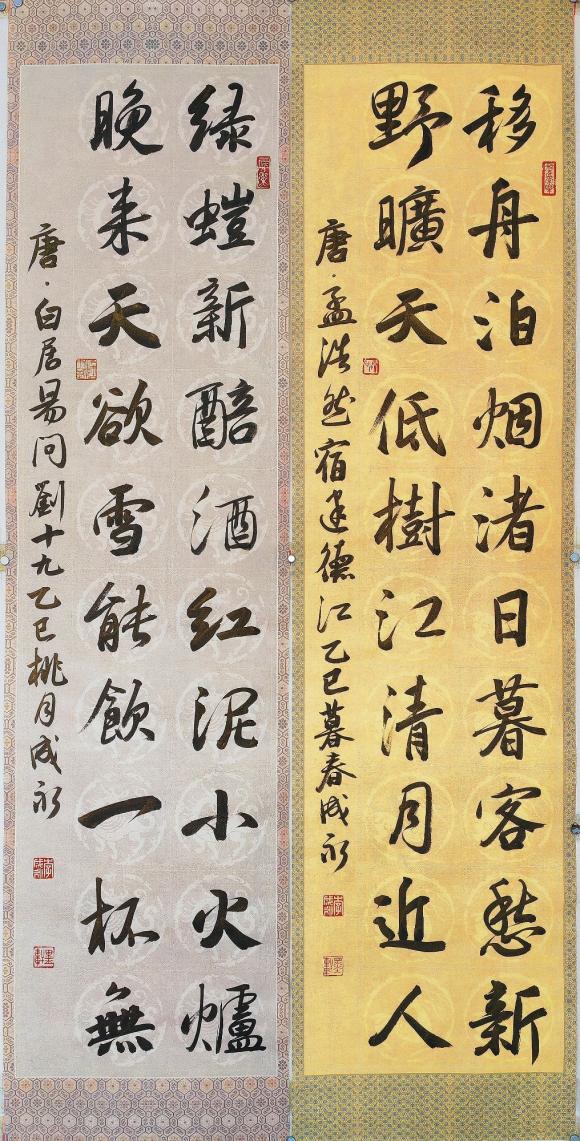 移舟泊烟渚日暮客愁新
野曠天低樹江清月近人
唐·孟浩然宿建德江乙巳暮春成永
绿螘新醅酒红泥小火爐
晚来天欲雪能飲一杯無
唐·白居易问劉十九乙巳桃月成永